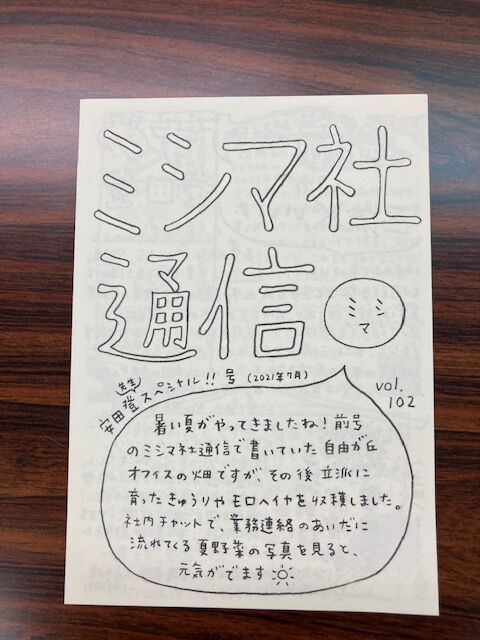 ミシマ社
通信
ミシマ
安田登先生スペシャル!! 号 (2021年7月)
vol.
102
暑い夏がやってきましたね!前号
のミシマ社通信で書いていた自由が丘
オフィスの畑ですが、その後立派に
育ったきゅうりやモロヘイヤを収穫しました。
社内チャットで、業務連絡のあいだに
流れてくる夏野菜の写真を見ると、
元気がでます